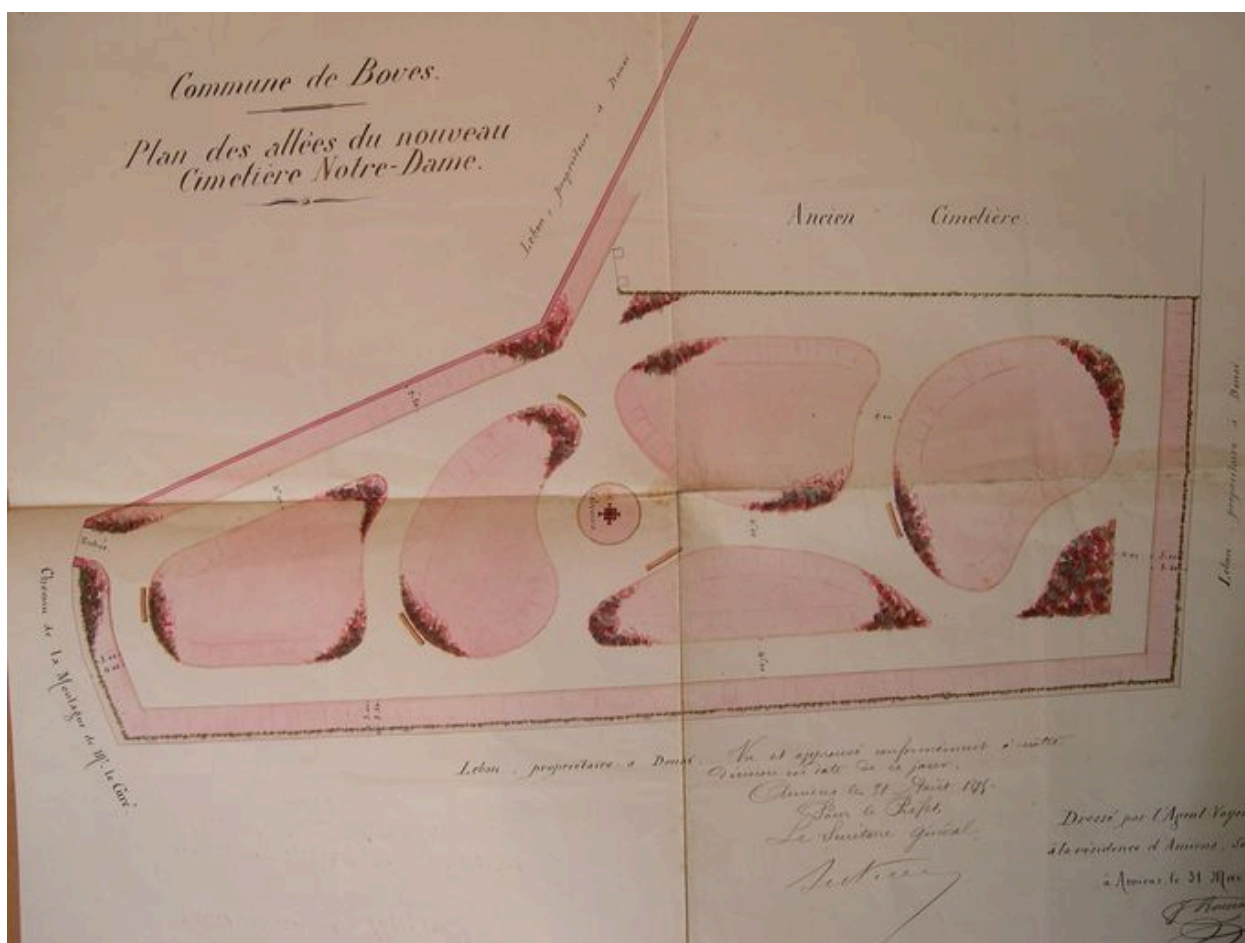 Commune de Boves.
Plan des allées du nouveau
Cimetière Notre-Dame.
Lebon, propriétaire à Douai
Ancien Cimetière.
Lebon propriétaire à Douai
Entrée
Calvaire
Chemin de la Montagne de Mr. le Curé.
Lebon, propriétaire à Douai.
Vu et approuvé conformément à notre
décision en date de ce jour.
Amiens le 31 Août
Pour le Préfet,
Le Secrétaire Général,
Dressé par l'Agent-Voyer
à la résidence d'Amiens,
à Amiens, le 31 Mai